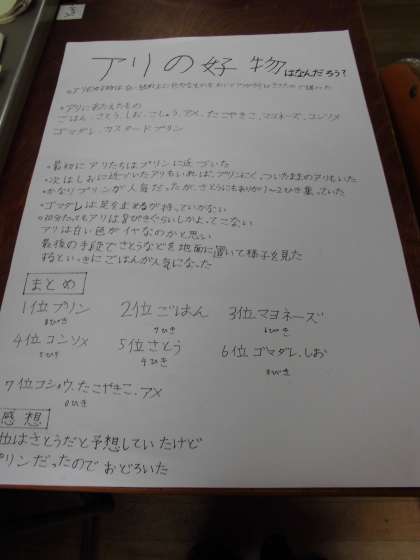 アリの好物はなんだろう？
・アリにあたえたもの
ごはん、さとう、しお、こしょう、アメ、たこやきこ、マヨネーズ、コンソメ
ゴマダレ、カスタードプリン
・最初にアリたちはプリンに近づいた
・次はしおに近づいたアリもいれば、プリンにくっついたままのアリもいた
・かなりプリンが人気だったが、さとうにもありが1〜2ひき集っていた
・ゴマダレは足を止めるが持っていかない
・10分たってもアリは8ぴきぐらいしかよってこない
アリは白い色がイヤなのかと思い
最後の手段でさとうなどを地面に置いて様子を見た
するといっきにごはんが人気になった
まとめ
1位プリン 2位ごはん 3位マヨネーズ
8ぴき 7ひき 6ぴき
4位コンソメ 5位さとう 6位ゴマダレ、しお
5ひき 4ひき
7位コショウ、たこやきこ、アメ
0ひき
感想
位はさとうだと予想していたけど
プリンだったのでおどろいた